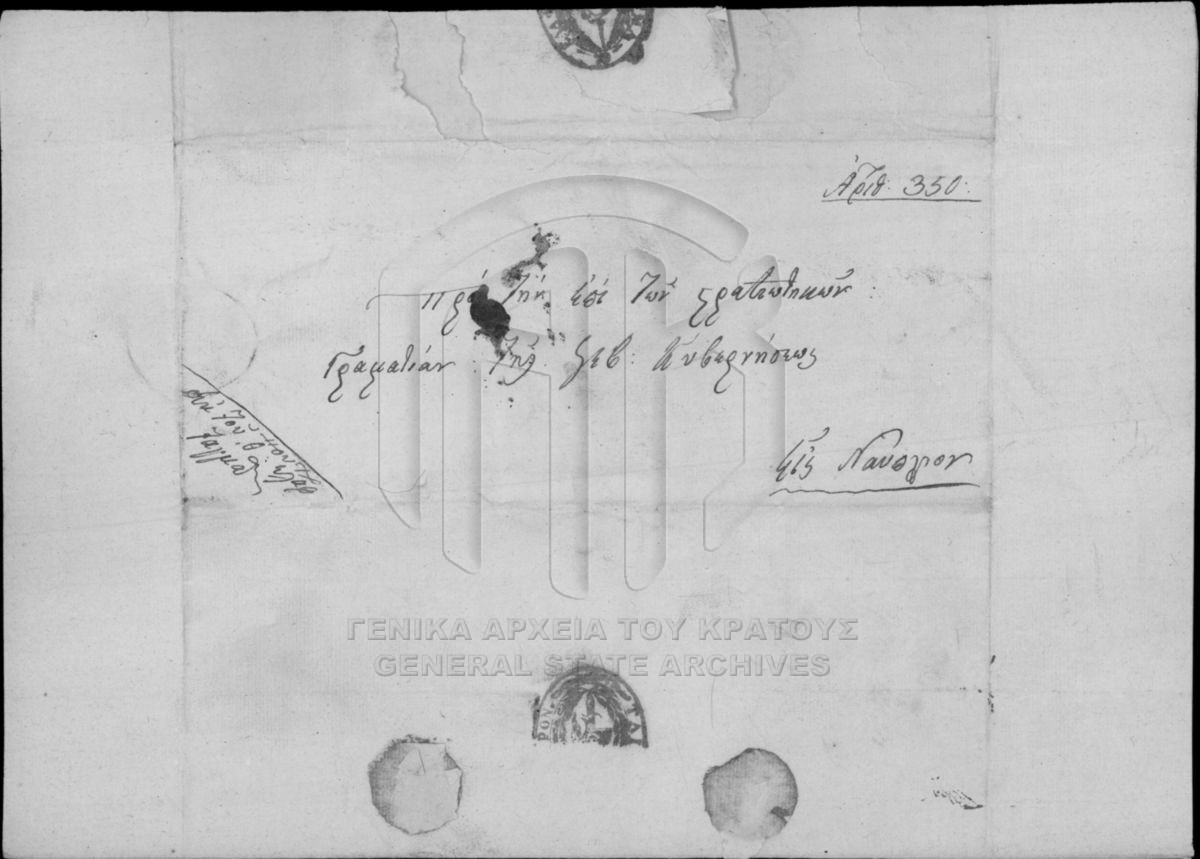 Ἀριθ: 350:
Πρὸς τὴν ἐπὶ τῶν ςρατιωτηκῶν
Γραματίαν τῆς Σεβ: Κυβερνήσεως
Εἰς Ναύπλιον
διὰ τοῦ
ΓΕΝΙΚΑ ΑΡΧΕΙΑ ΤΟΥ ΚΡΑΤΟΥΣ
GENERAL STATE ARCHIVES